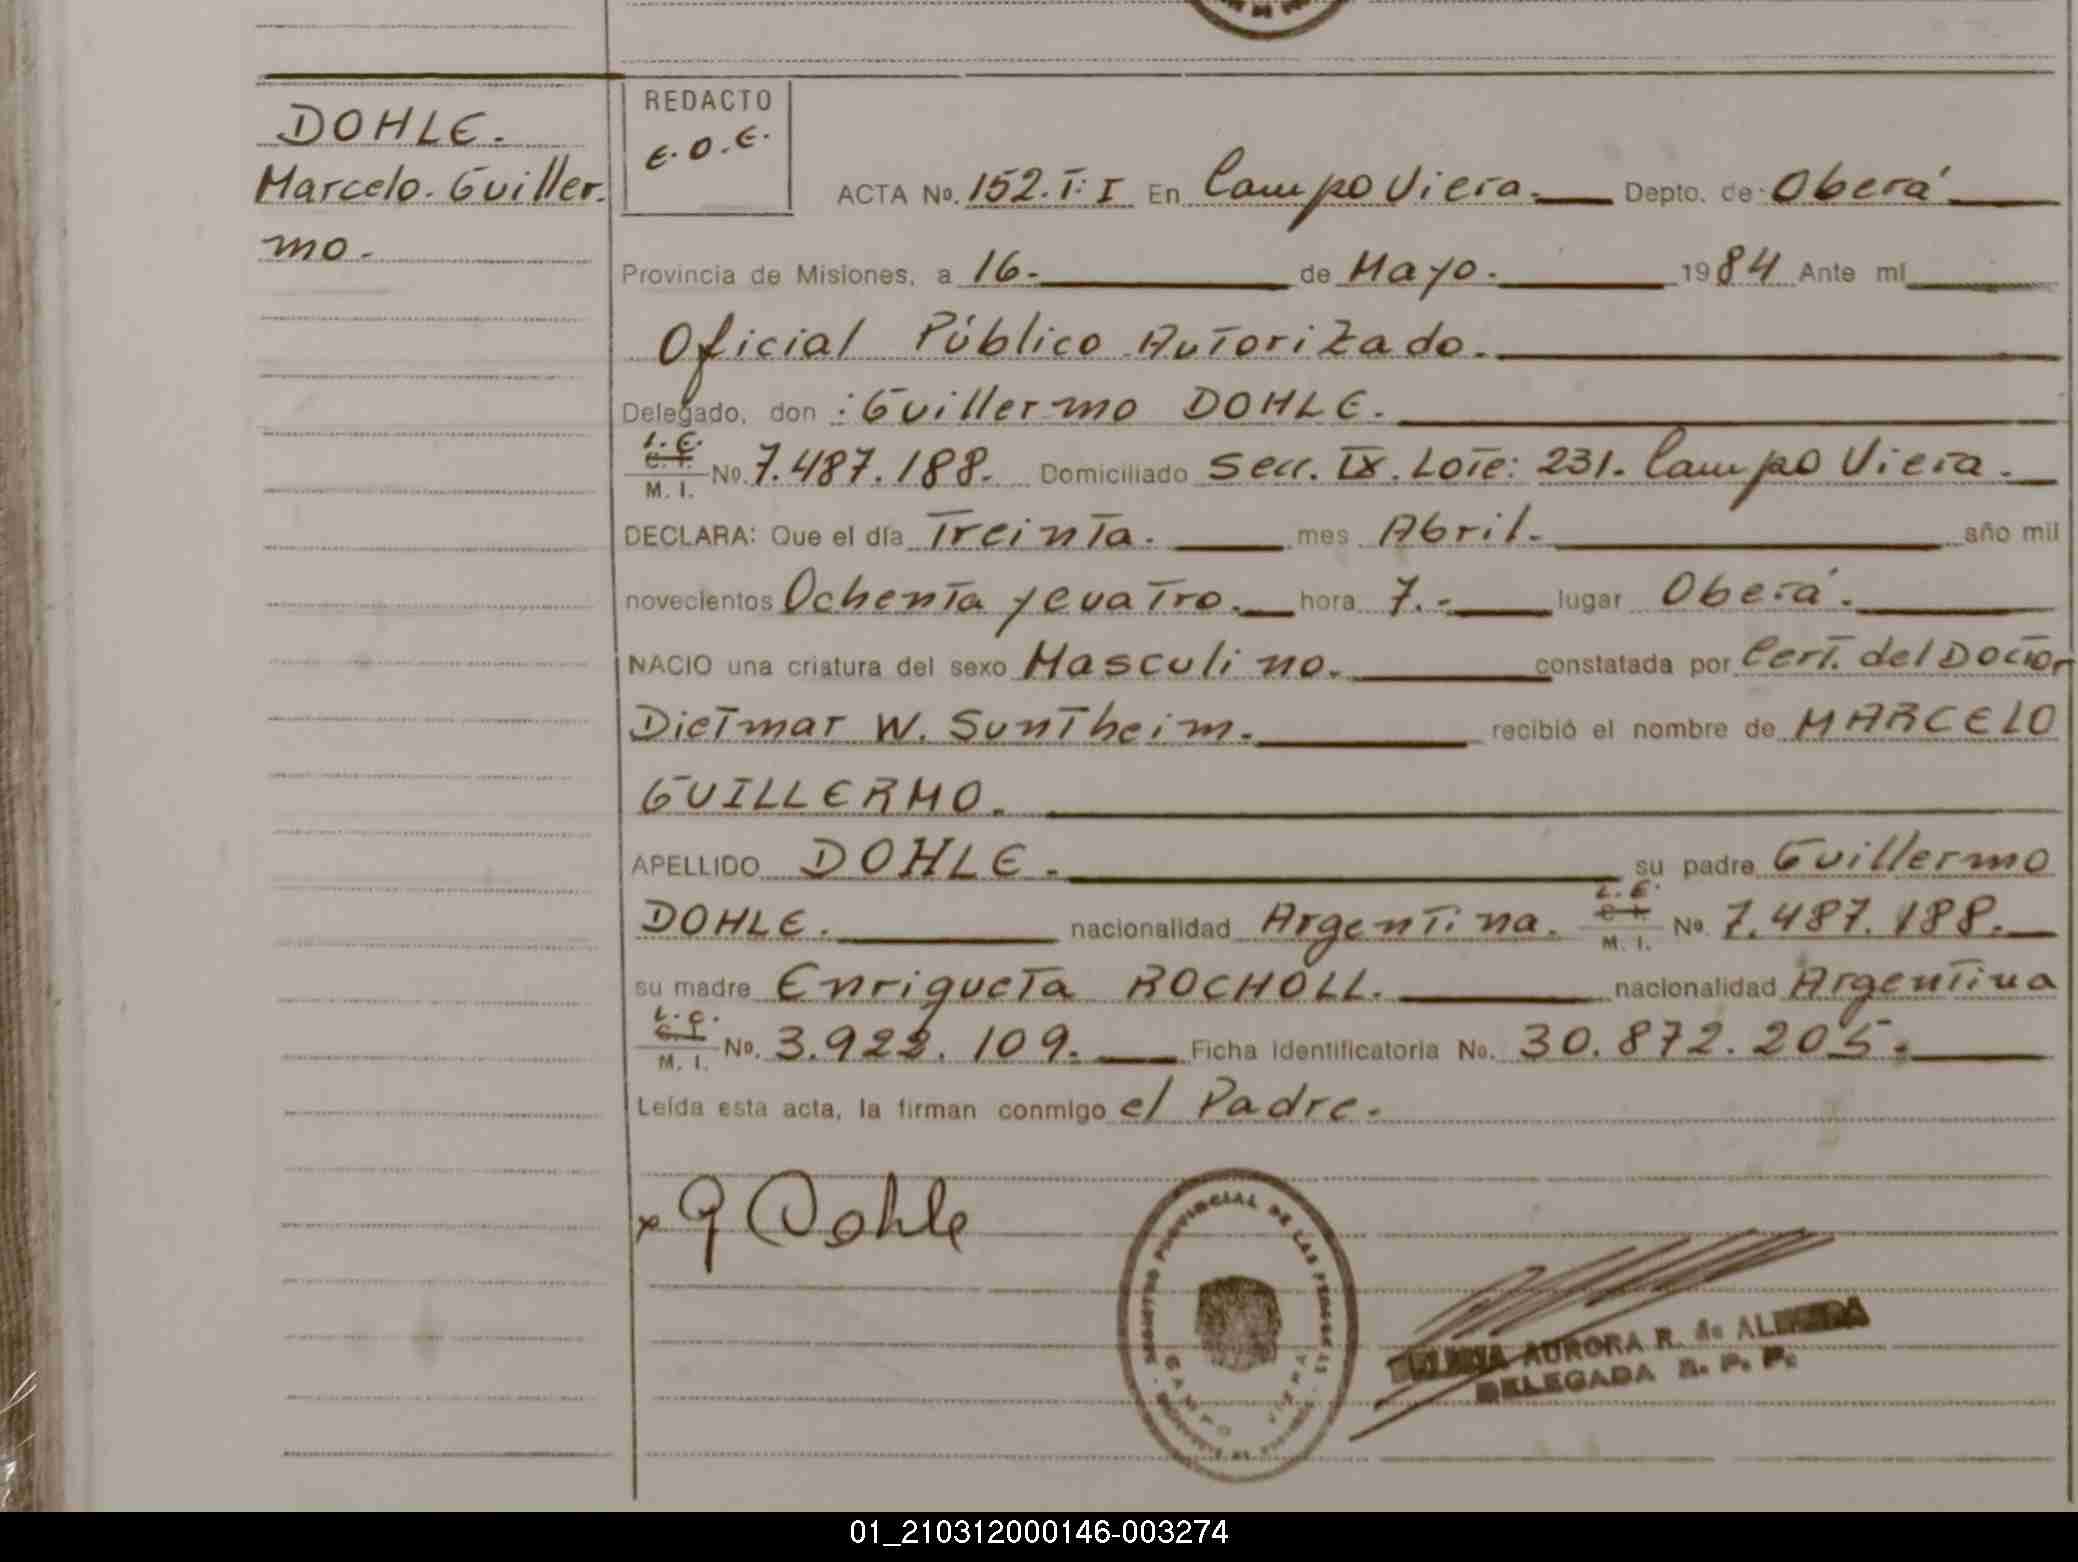 DOHLE.
Marcelo. Guiller.
mo.
REDACTO
E.O.E.
ACTA No. 152. T: I En Campo Viera. Depto. de Oberá
Provincia de Misiones, a 16. de Mayo. 1984 Ante mí
Oficial Público Autorizado.
Delegado, don : Guillermo DOHLE.
L. E.
C. I.
M. I. No. 7.487.188. Domiciliado Secc. IX. Lote: 231. Campo Viera.
DECLARA: Que el día Treinta. mes Abril. año mil
novecientos Ochenta y cuatro. hora 7. lugar Oberá.
NACIO una criatura del sexo Masculino. constatada por Cert. del Doctor
Dietmar W. Suntheim. recibió el nombre de MARCELO
GUILLERMO.
APELLIDO DOHLE. su padre Guillermo
L. E.
C. I.
DOHLE. nacionalidad Argentina. M. I. No. 7.487.188.
su madre Enriqueta ROCHOLL. nacionalidad Argentina
L. C.
C. I.
M. I. No. 3.922.109. Ficha identificatoria No. 30.872.205.
Leída esta acta, la firman conmigo el Padre.
x G Dohle
REGISTRO PROVINCIAL DE LAS PERSONAS
CAMPO VIERA
AURORA R. de ALMEIDA
DELEGADA R. P. P.
01_210312000146-003274